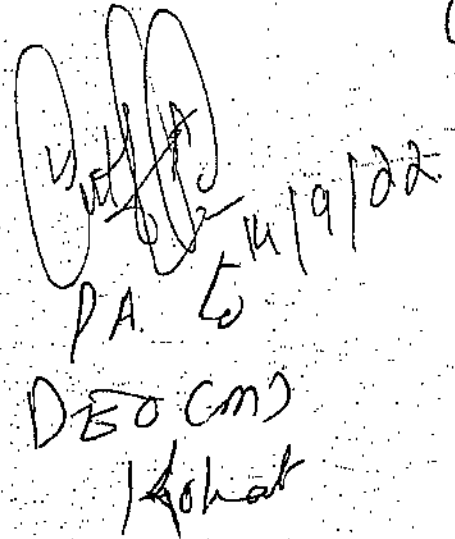 14/9/22
P A. to
DEO (m)
Kohat